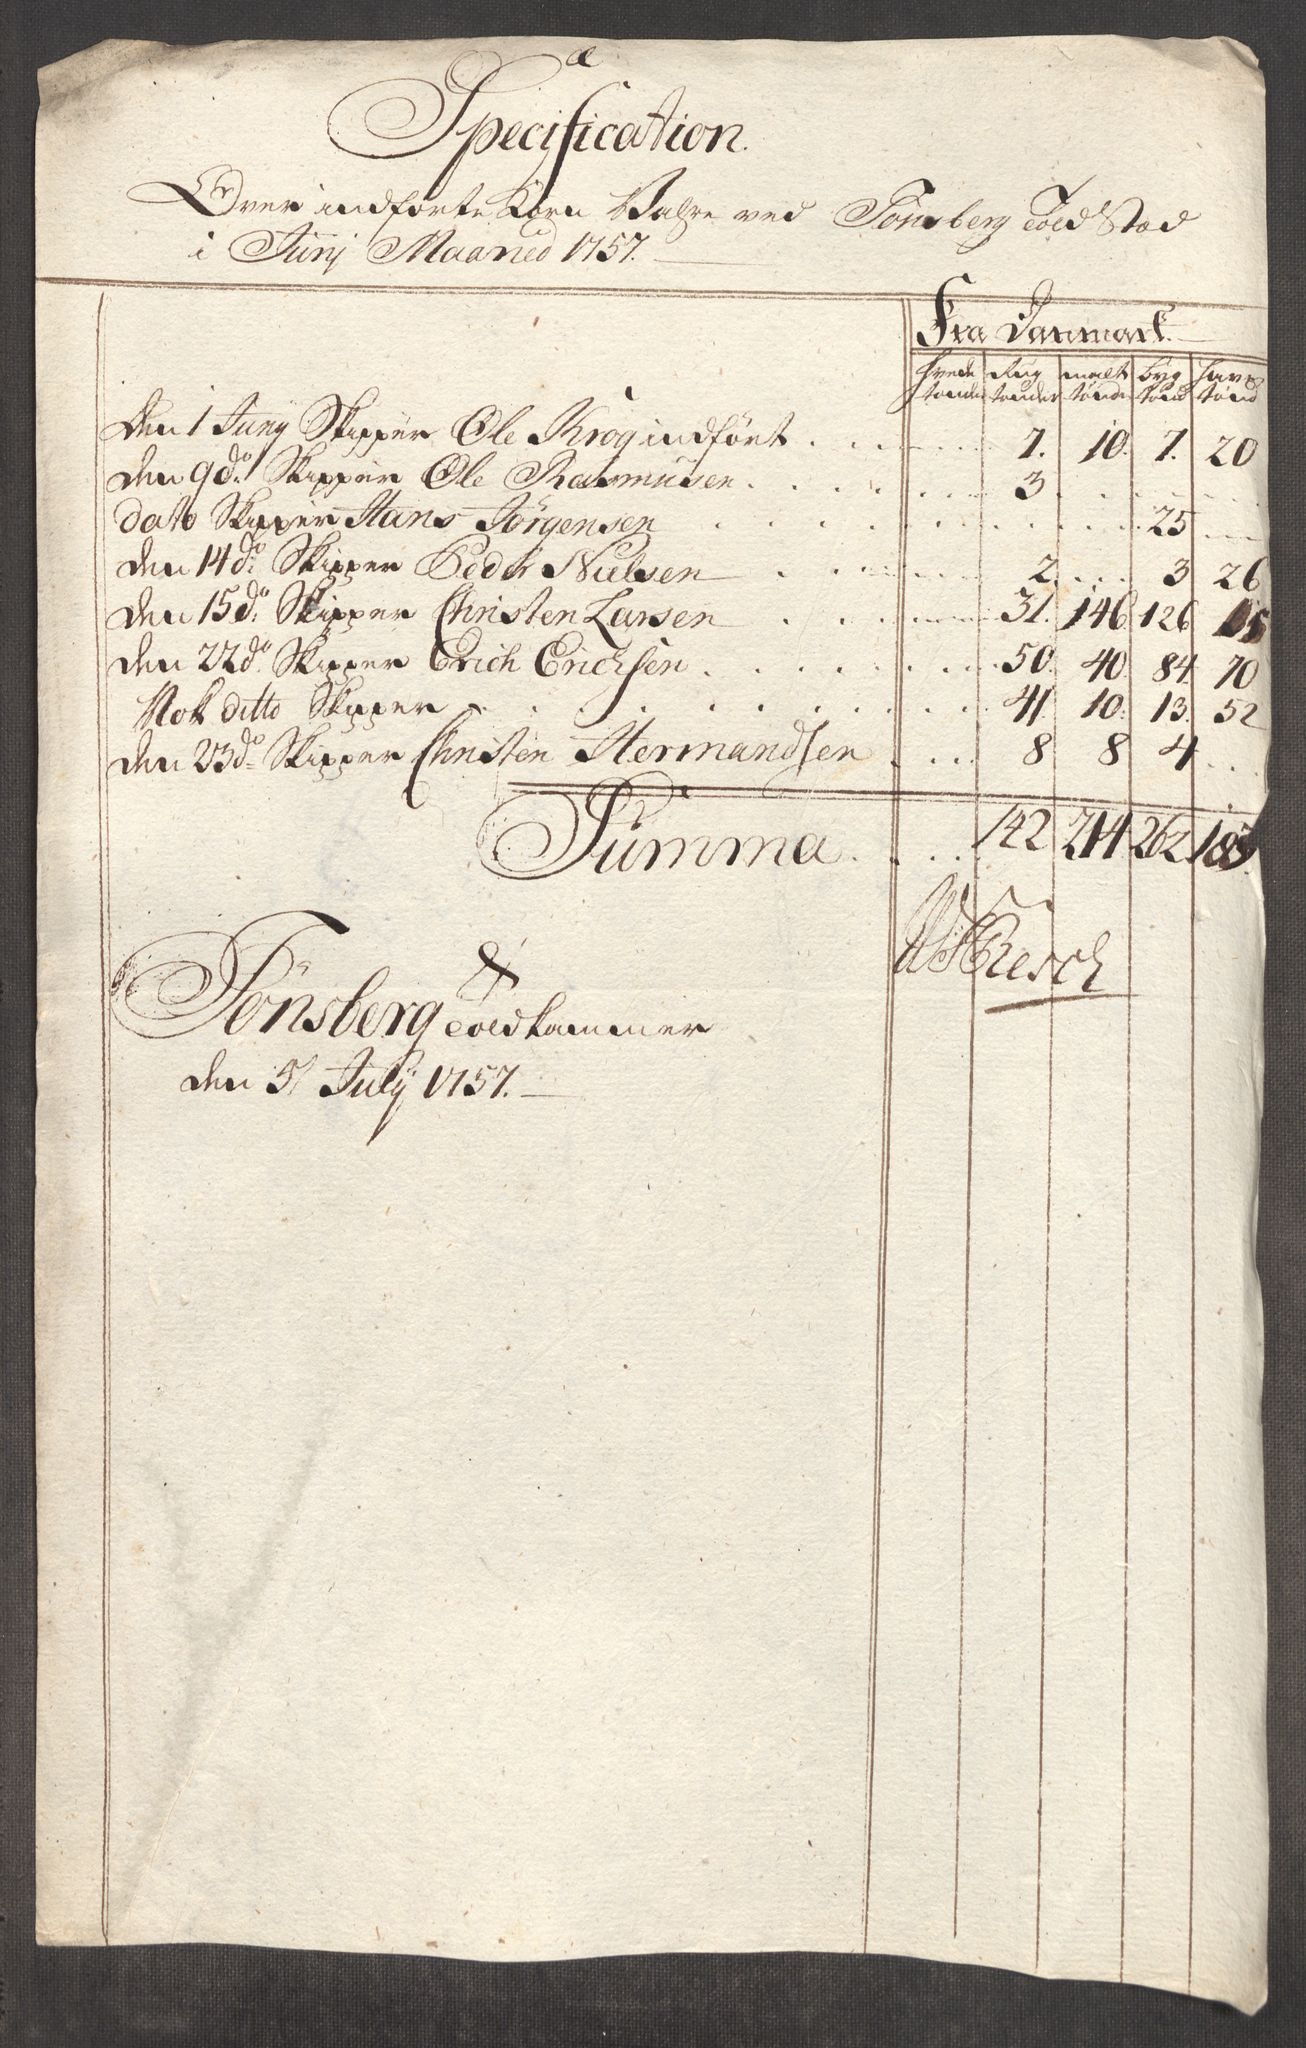 Specification
Over indførte Korn Vahre ved Tønsberg Told Stæd
i Junj Maaned 1757.
Fra Danmark
Hvede Rug malt byg havre
tønder tønder tønder tønd tønd
Den 1 Junij Skipper Ole Krog indført . . . 7. 10. 7. 20
den 9 do Skipper Ole Rasmusen . . . 3
dato Skipper Hans Jørgensen . . . 25
den 14 do Skipper Peder Nielsen . . . 2 3 26
den 15 do Skipper Christen Larsen . . . 31. 146 126 15
den 22 do Skipper Erich Erichsen . . . 50. 40. 84 70
Nok ditto Skipper . . . 41 10. 13. 52
den 23 do Skipper Christen Hermandsen . . . 8 8 4
Summa . . . 142 214 262 183
Resch
Tønsberg Toldkammer
den 5 July 1757.